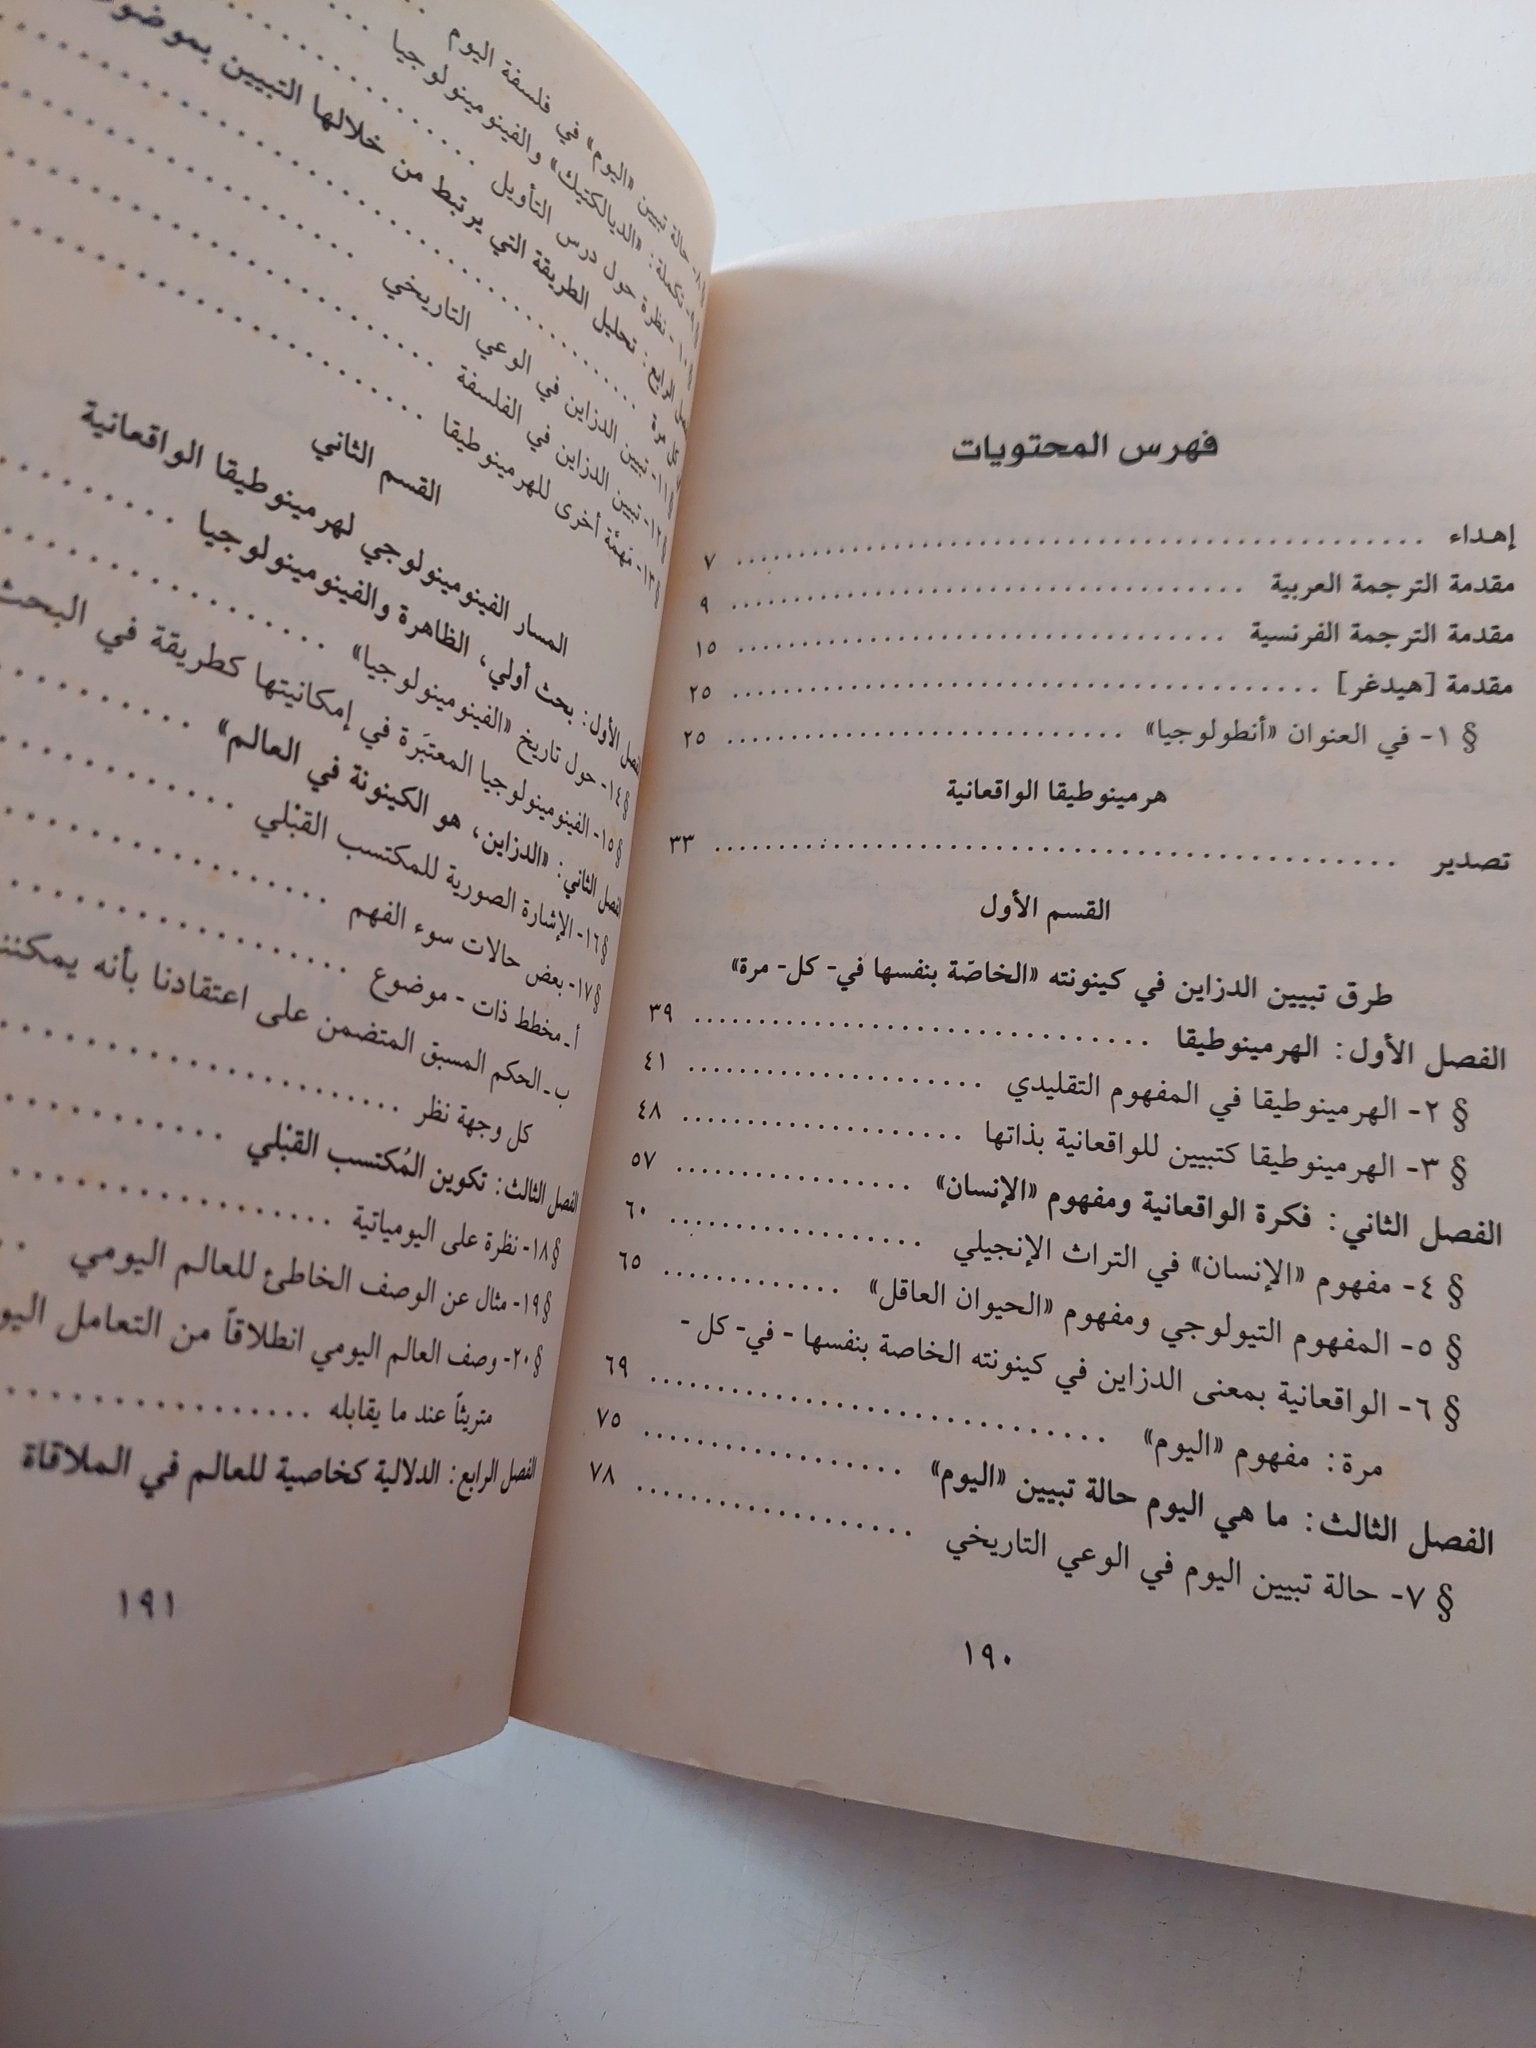 فهرس المحتويات
إهداء ........ ٧
مقدمة الترجمة العربية ........ ٩
مقدمة الترجمة الفرنسية ........ ١٥
مقدمة [هيدغر] ........ ٢٥
§ ١- في العنوان «أنطولوجيا» ........ ٢٥
هرمينوطيقا الواقعانية
تصدير ........ ٣٣
القسم الأول
طرق تبيين الدزاين في كينونته «الخاصّة بنفسها في- كل- مرة»
الفصل الأول: الهرمينوطيقا ........ ٣٩
§ ٢- الهرمينوطيقا في المفهوم التقليدي ........ ٤١
§ ٣- الهرمينوطيقا كتبيين للواقعانية بذاتها ........ ٤٨
الفصل الثاني: فكرة الواقعانية ومفهوم «الإنسان» ........ ٥٧
§ ٤- مفهوم «الإنسان» في التراث الإنجيلي ........ ٦٠
§ ٥- المفهوم التيولوجي ومفهوم «الحيوان العاقل» ........ ٦٥
§ ٦- الواقعانية بمعنى الدزاين في كينونته الخاصة بنفسها - في- كل -
مرة: مفهوم «اليوم» ........ ٦٩
الفصل الثالث: ما هي اليوم حالة تبيين «اليوم» ........ ٧٥
§ ٧- حالة تبيين اليوم في الوعي التاريخي ........ ٧٨
١٩٠
§٨- حالة تبيين «اليوم» في فلسفة اليوم ........
§٩- تكملة: «الديالكتيك» والفينومينولوجيا ........
§١٠- نظرة حول درس التأويل ........
الرابع: تحليل الطريقة التي يرتبط من خلالها التبيين
كل مرة ........
§١١- تبيين الدزاين في الوعي التاريخي ........
§١٢- تبيين الدزاين في الفلسفة ........
§١٣- مَهمَّة أخرى للهرمينوطيقا ........
القسم الثاني
المسار الفينومينولوجي لهرمينوطيقا الواقعانية
الأول: بحث أولي، الظاهرة والفينومينولوجيا ........
§١٤- حول تاريخ «الفينومينولوجيا» ........
§١٥- الفينومينولوجيا المعتبَرة في إمكانيتها كطريقة في البحث
الفصل الثاني: «الدزاين، هو الكينونة في العالم» ........
§١٦- الإشارة الصورية للمكتسب القبْلي ........
§١٧- بعض حالات سوء الفهم ........
أ ـ مخطط ذات - موضوع ........
ب ـ الحكم المسبق المتضمن على اعتقادنا بأنه
كل وجهة نظر ........
الفصل الثالث: تكوين المُكتسب القبْلي ........
§١٨- نظرة على اليومياتية ........
§١٩- مثال عن الوصف الخاطئ للعالم اليومي ..
§٢٠- وصف العالم اليومي انطلاقاً من التعامل
متريثاً عند ما يقابله ........
الفصل الرابع: الدلالية كخاصية للعالم في الملاقاة
١٩١